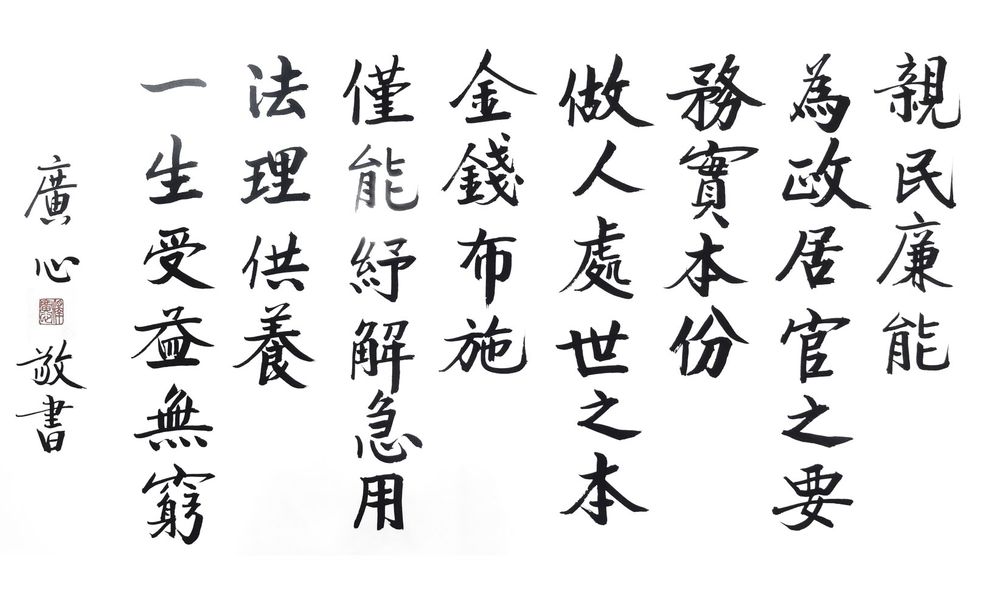 親民廉能
為政居官之要
務實本份
做人處世之本
金錢布施
僅能紓解急用
法理供養
一生受益無窮
廣心敬書